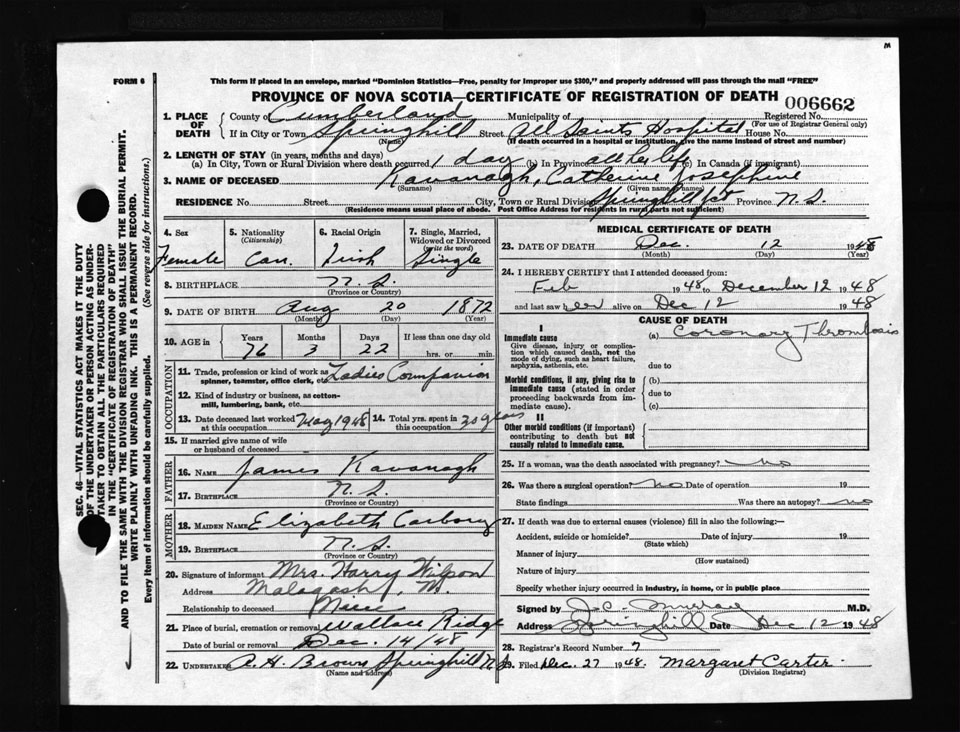 M
FORM 6
This form if placed in an envelope, marked "Dominion Statistics—Free, penalty for improper use $300," and properly addressed will pass through the mail "FREE"
PROVINCE OF NOVA SCOTIA—CERTIFICATE OF REGISTRATION OF DEATH
006662
1. PLACE OF DEATH
County of Cumberland Municipality of Registered No.
(For use of Registrar General only)
If in City or Town Springhill Street All Saints Hospital House No.
(Name) (If death occurred in a hospital or institution, give the name instead of street and number)
2. LENGTH OF STAY (in years, months and days)
(a) In City, Town or Rural Division where death occurred 1 day (b) In Province all her life (c) In Canada (if immigrant)
3. NAME OF DECEASED Kavanagh, Catherine Josephine
(Surname) (Given name or names)
RESIDENCE No. Street City, Town or Rural Division Springhill Jct Province N.S.
(Residence means usual place of abode. Post Office Address for residents in rural parts not sufficient)
4. Sex
Female
5. Nationality
(Citizenship)
Can.
6. Racial Origin
Irish
7. Single, Married, Widowed or Divorced
(write the word)
Single
8. BIRTHPLACE N.S.
(Province or Country)
9. DATE OF BIRTH Aug 20 1872
(Month) (Day) (Year)
10. AGE in Years Months Days If less than one day old
76 3 22 hrs. or min.
OCCUPATION
11. Trade, profession or kind of work as spinner, teamster, office clerk, etc. Ladies Companion
12. Kind of industry or business, as cotton-mill, lumbering, bank, etc.
13. Date deceased last worked at this occupation May 1948
14. Total yrs. spent in this occupation 30 years
15. If married give name of wife or husband of deceased
FATHER
16. NAME James Kavanagh
17. BIRTHPLACE N.S.
(Province or Country)
MOTHER
18. MAIDEN NAME Elizabeth Carbory
19. BIRTHPLACE N.S.
(Province or Country)
20. Signature of informant Mrs. Harry Wilson
Address Malagash, N.
Relationship to deceased Niece
21. Place of burial, cremation or removal Wallace Ridge
Date of burial or removal Dec. 14/48
22. UNDERTAKER A. H. Brown Springhill N.S.
(Name and address)
MEDICAL CERTIFICATE OF DEATH
23. DATE OF DEATH Dec. 12 1948
(Month) (Day) (Year)
24. I HEREBY CERTIFY that I attended deceased from:
Feb 1948 to December 12 1948
and last saw her alive on Dec 12 1948
CAUSE OF DEATH
I
Immediate cause
Give disease, injury or complication which caused death, not the mode of dying, such as heart failure, asphyxia, asthenia, etc.
(a) Coronary Thrombosis
due to
Morbid conditions, if any, giving rise to immediate cause (stated in order proceeding backwards from immediate cause).
(b)
due to
(c)
II
Other morbid conditions (if important) contributing to death but not causally related to immediate cause.
25. If a woman, was the death associated with pregnancy? no
26. Was there a surgical operation? no Date of operation 19
State findings Was there an autopsy? no
27. If death was due to external causes (violence) fill in also the following:—
Accident, suicide or homicide? Date of injury 19
(State which)
Manner of injury
(How sustained)
Nature of injury
Specify whether injury occurred in industry, in home, or in public place
Signed by J. C. Murray M.D.
Address Springhill Date Dec 12 1948
28. Registrar's Record Number 7
29. Filed Dec. 27 1948. Margaret Carter.
(Division Registrar)
SEC. 46—VITAL STATISTICS ACT MAKES IT THE DUTY
OF THE UNDERTAKER OR PERSON ACTING AS UNDER-
TAKER TO OBTAIN ALL THE PARTICULARS REQUIRED
IN THE "CERTIFICATE OF REGISTRATION OF DEATH"
AND TO FILE THE SAME WITH THE DIVISION REGISTRAR WHO SHALL ISSUE THE BURIAL PERMIT.
WRITE PLAINLY WITH UNFADING INK. THIS IS A PERMANENT RECORD.
Every item of information should be carefully supplied. (See reverse side for instructions.)